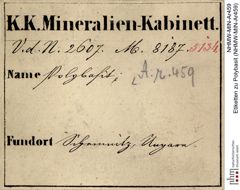 K.K. Mineralien-Kabinett.
V.d. N. 2607. M. 8187. 5134
Name Polybasit;
A.r. 459
Fundort Schemnitz, Ungarn.
NHMW-MIN-Ar459
Etiketten zu Polybasit (NHMW-MIN-Ar459)
nhm